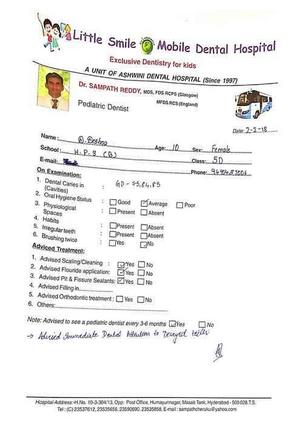 Little Smile Mobile Dental Hospital
Exclusive Dentistry for kids
A UNIT OF ASHWINI DENTAL HOSPITAL (Since 1997)
Dr. SAMPATH REDDY, MDS, FDS RCPS (Glasgow)
MFDS RCS (England)
Pediatric Dentist
Date: 2-2-18
Name: Age: 10 Sex: Female
School: H.P.S (B) Class: 5D
E-mail: Phone:
On Examination:
1. Dental Caries in : GD - 75,84,85
(Cavities)
2. Oral Hygiene Status : Good Average Poor
3. Physiological : Present Absent
Spaces
4. Habits : Present Absent
5. Irregular teeth : Present Absent
6. Brushing twice : Yes No
Adviced Treatment:
1. Advised Scaling/Cleaning : Yes No
2. Advised Flouride application: Yes No
3. Advised Pit & Fissure Sealants: Yes No
4. Advised Filling in
5. Advised Orthodontic treatment : Yes No
6. Others:
Note: Advised to see a pediatric dentist every 3-6 months Yes No
→ Advised Immediate Dental Attention to Decayed teeth
Hospital Address: H.No. 10-3-304/13, Opp: Post Office, Humayunagar, Masab Tank, Hyderabad - 500 028 T.S.
Tel: (C) 23537612, 23535658, 23590690, 23535858. E-mail: sampathcheruku@yahoo.com